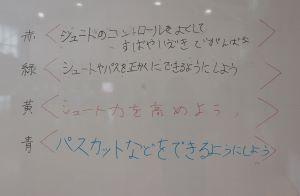 赤 ジュニドのコントロールをよくして
すばやいえきでがんばる
緑 シュートやパスを正かくにできるようにしよう
黄 シュート力を高めよう。
青 パスカットなどをできるようにしよう